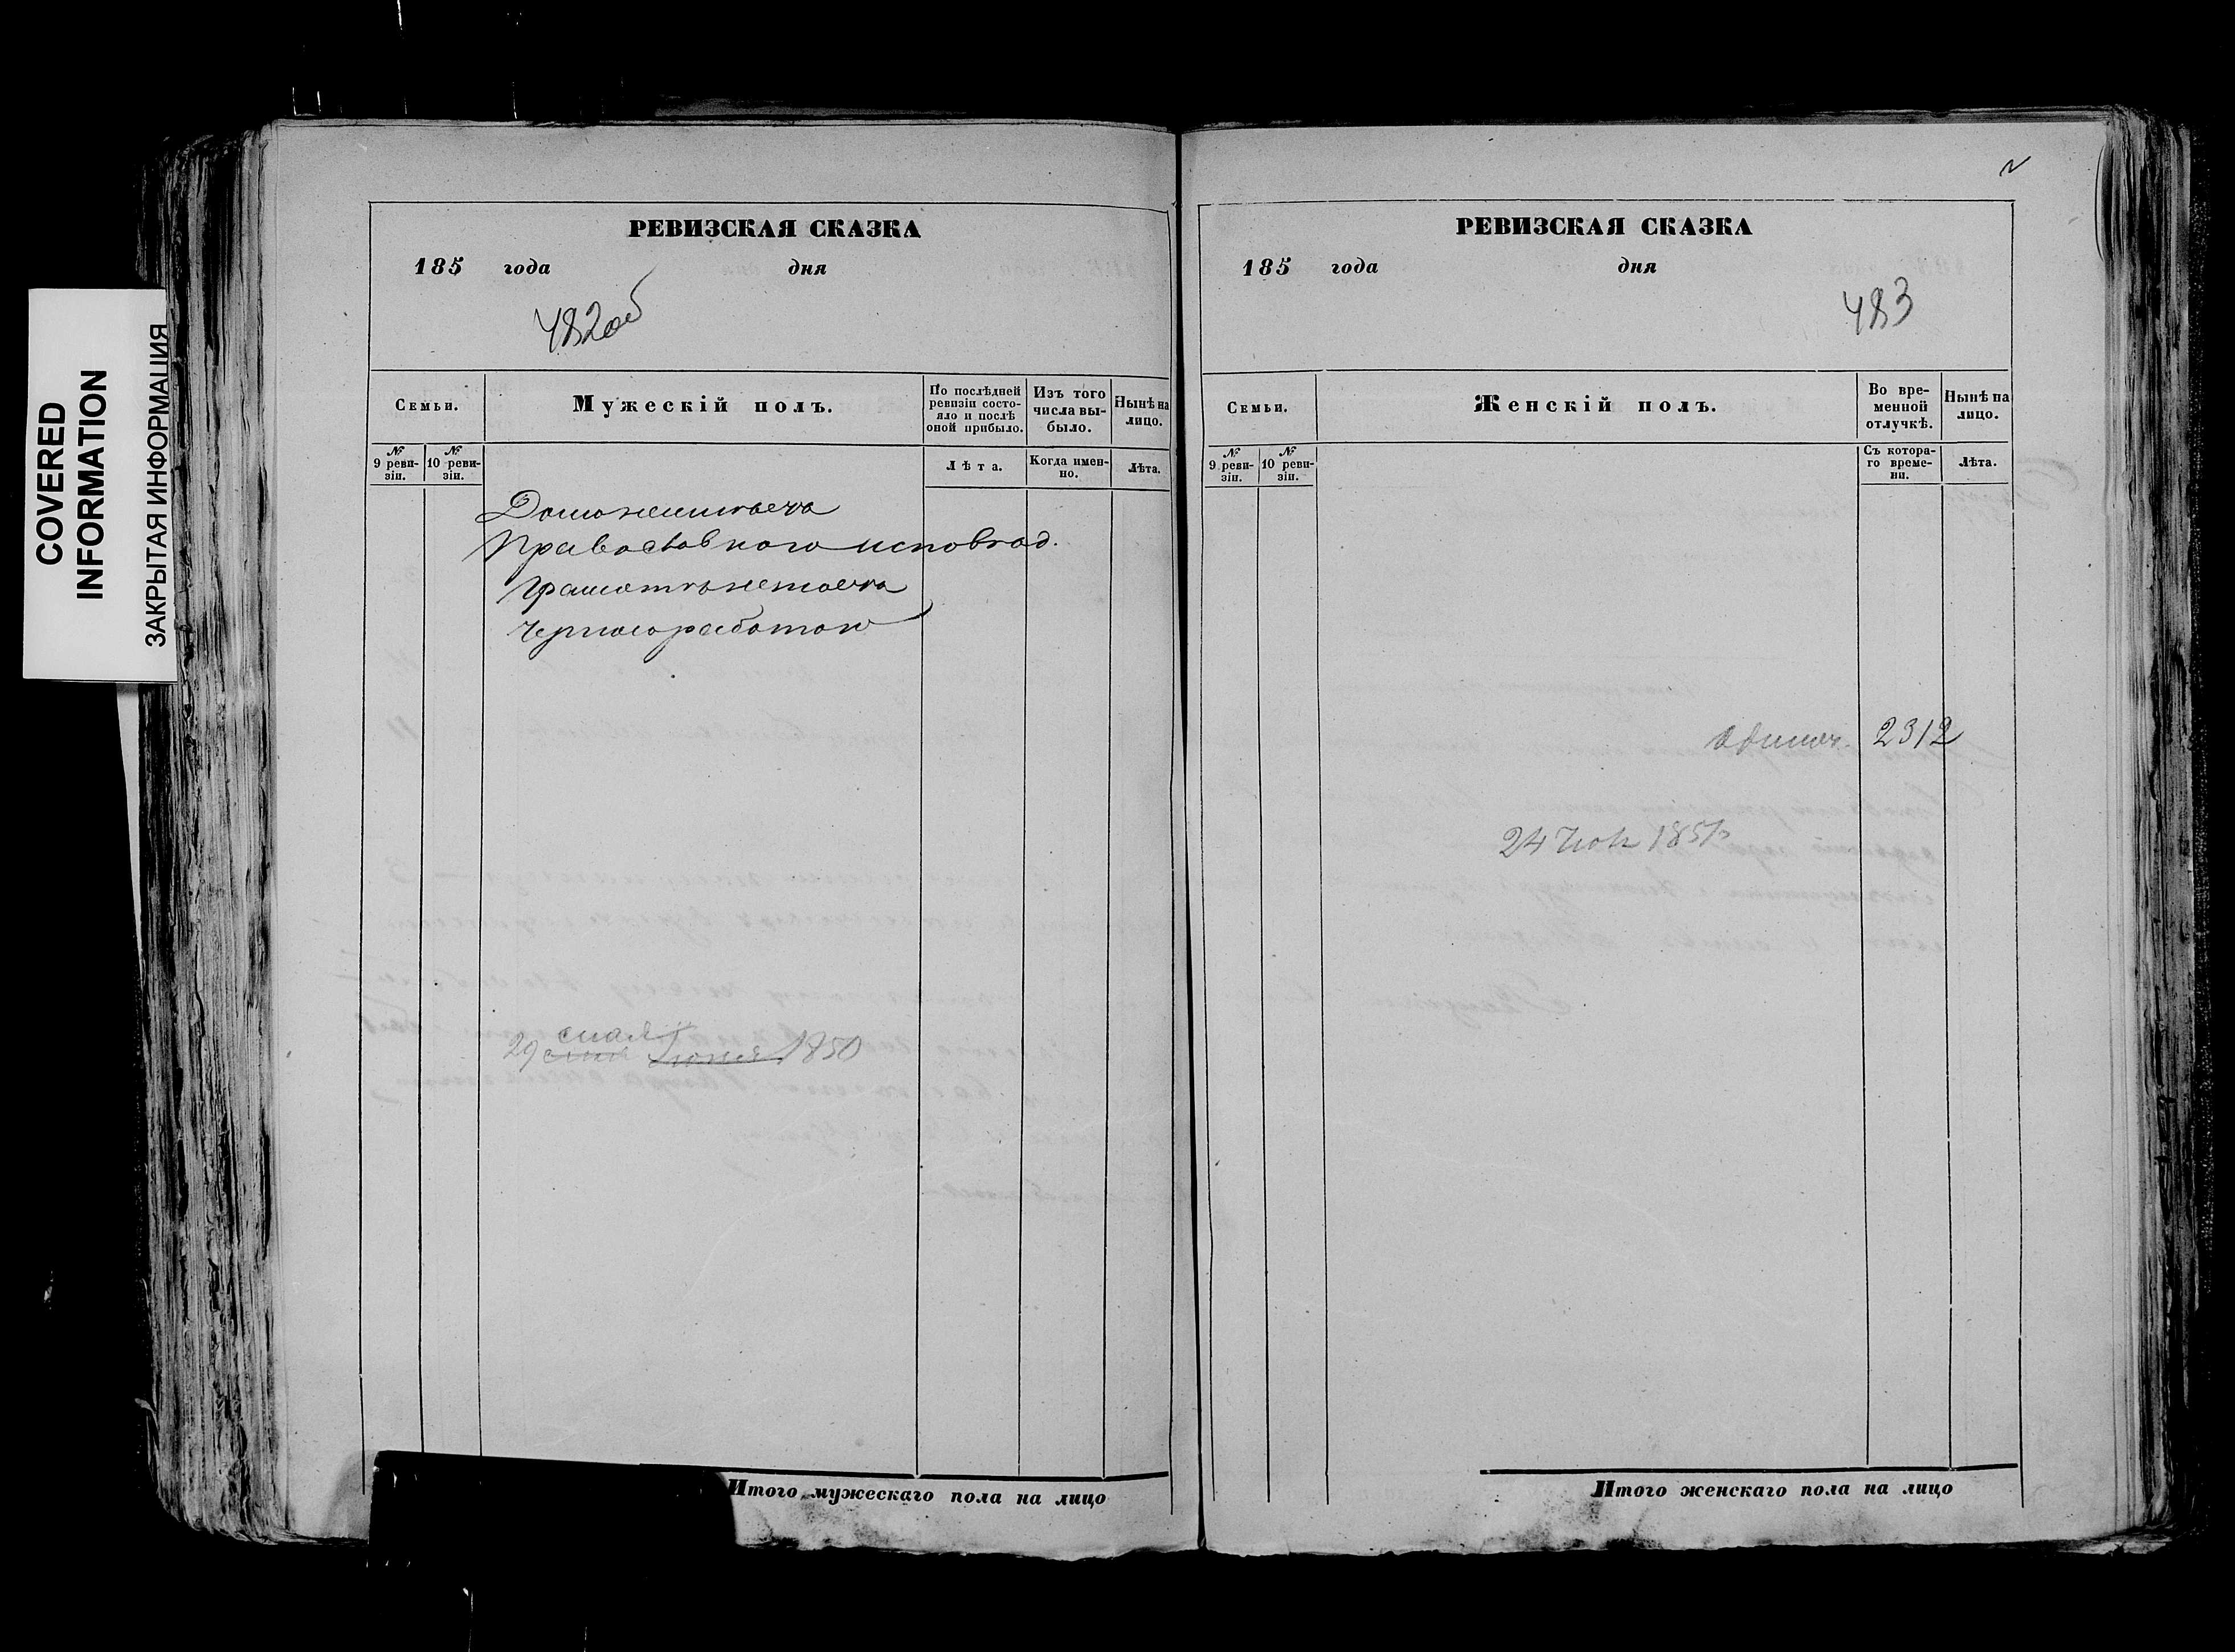 COVERED
INFORMATION
ЗАКРЫТАЯ ИНФОРМАЦИЯ
РЕВИЗСКАЯ СКАЗКА
185 года дня
482об
Семьи.
Мужескій полъ.
По послѣдней
ревизіи состо-
яло и послѣ
оной прибыло.
Изъ того
числа вы-
было.
Нынѣ на
лицо.
№
9 реви-
зіи.
№
10 реви-
зіи.
Лѣта.
Когда имен-
но.
Лѣта.
Православного исповѣд.
Грамотѣ
Чернороботою
29 1850
Итого мужескаго пола на лицо
РЕВИЗСКАЯ СКАЗКА
185 года дня
483
Семьи.
Женскій полъ.
Во вре-
менной
отлучкѣ.
Нынѣ на
лицо.
№
9 реви-
зіи.
№
10 реви-
зіи.
Съ котора-
го време-
ни.
Лѣта.
2312
24
Итого женскаго пола на лицо